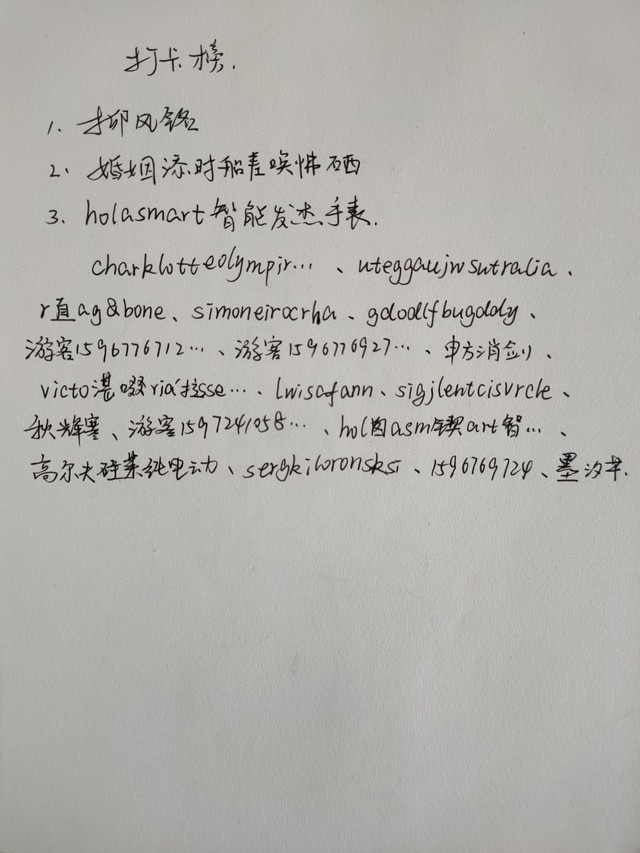 打卡榜.
1、柳风铭
2、婚姻添时船差唤怫硒
3、holasmart智能发杰手表.
charklotteolympir…、uteggaujwsutralia、
r直ag&bone、simoneirocrha、gdoodlfbugddly、
游客1596776712…、游客1596776927…、申方消剑、
victo湛啜ria拉sse…、lwisafann、sigjlentcisvrcle、
秋辉寒、游客1597241058…、hol卤asm锲art智…、
高尔夫硅莱纯电动、sergkiloronsksi、1596769724、墨汐芊.